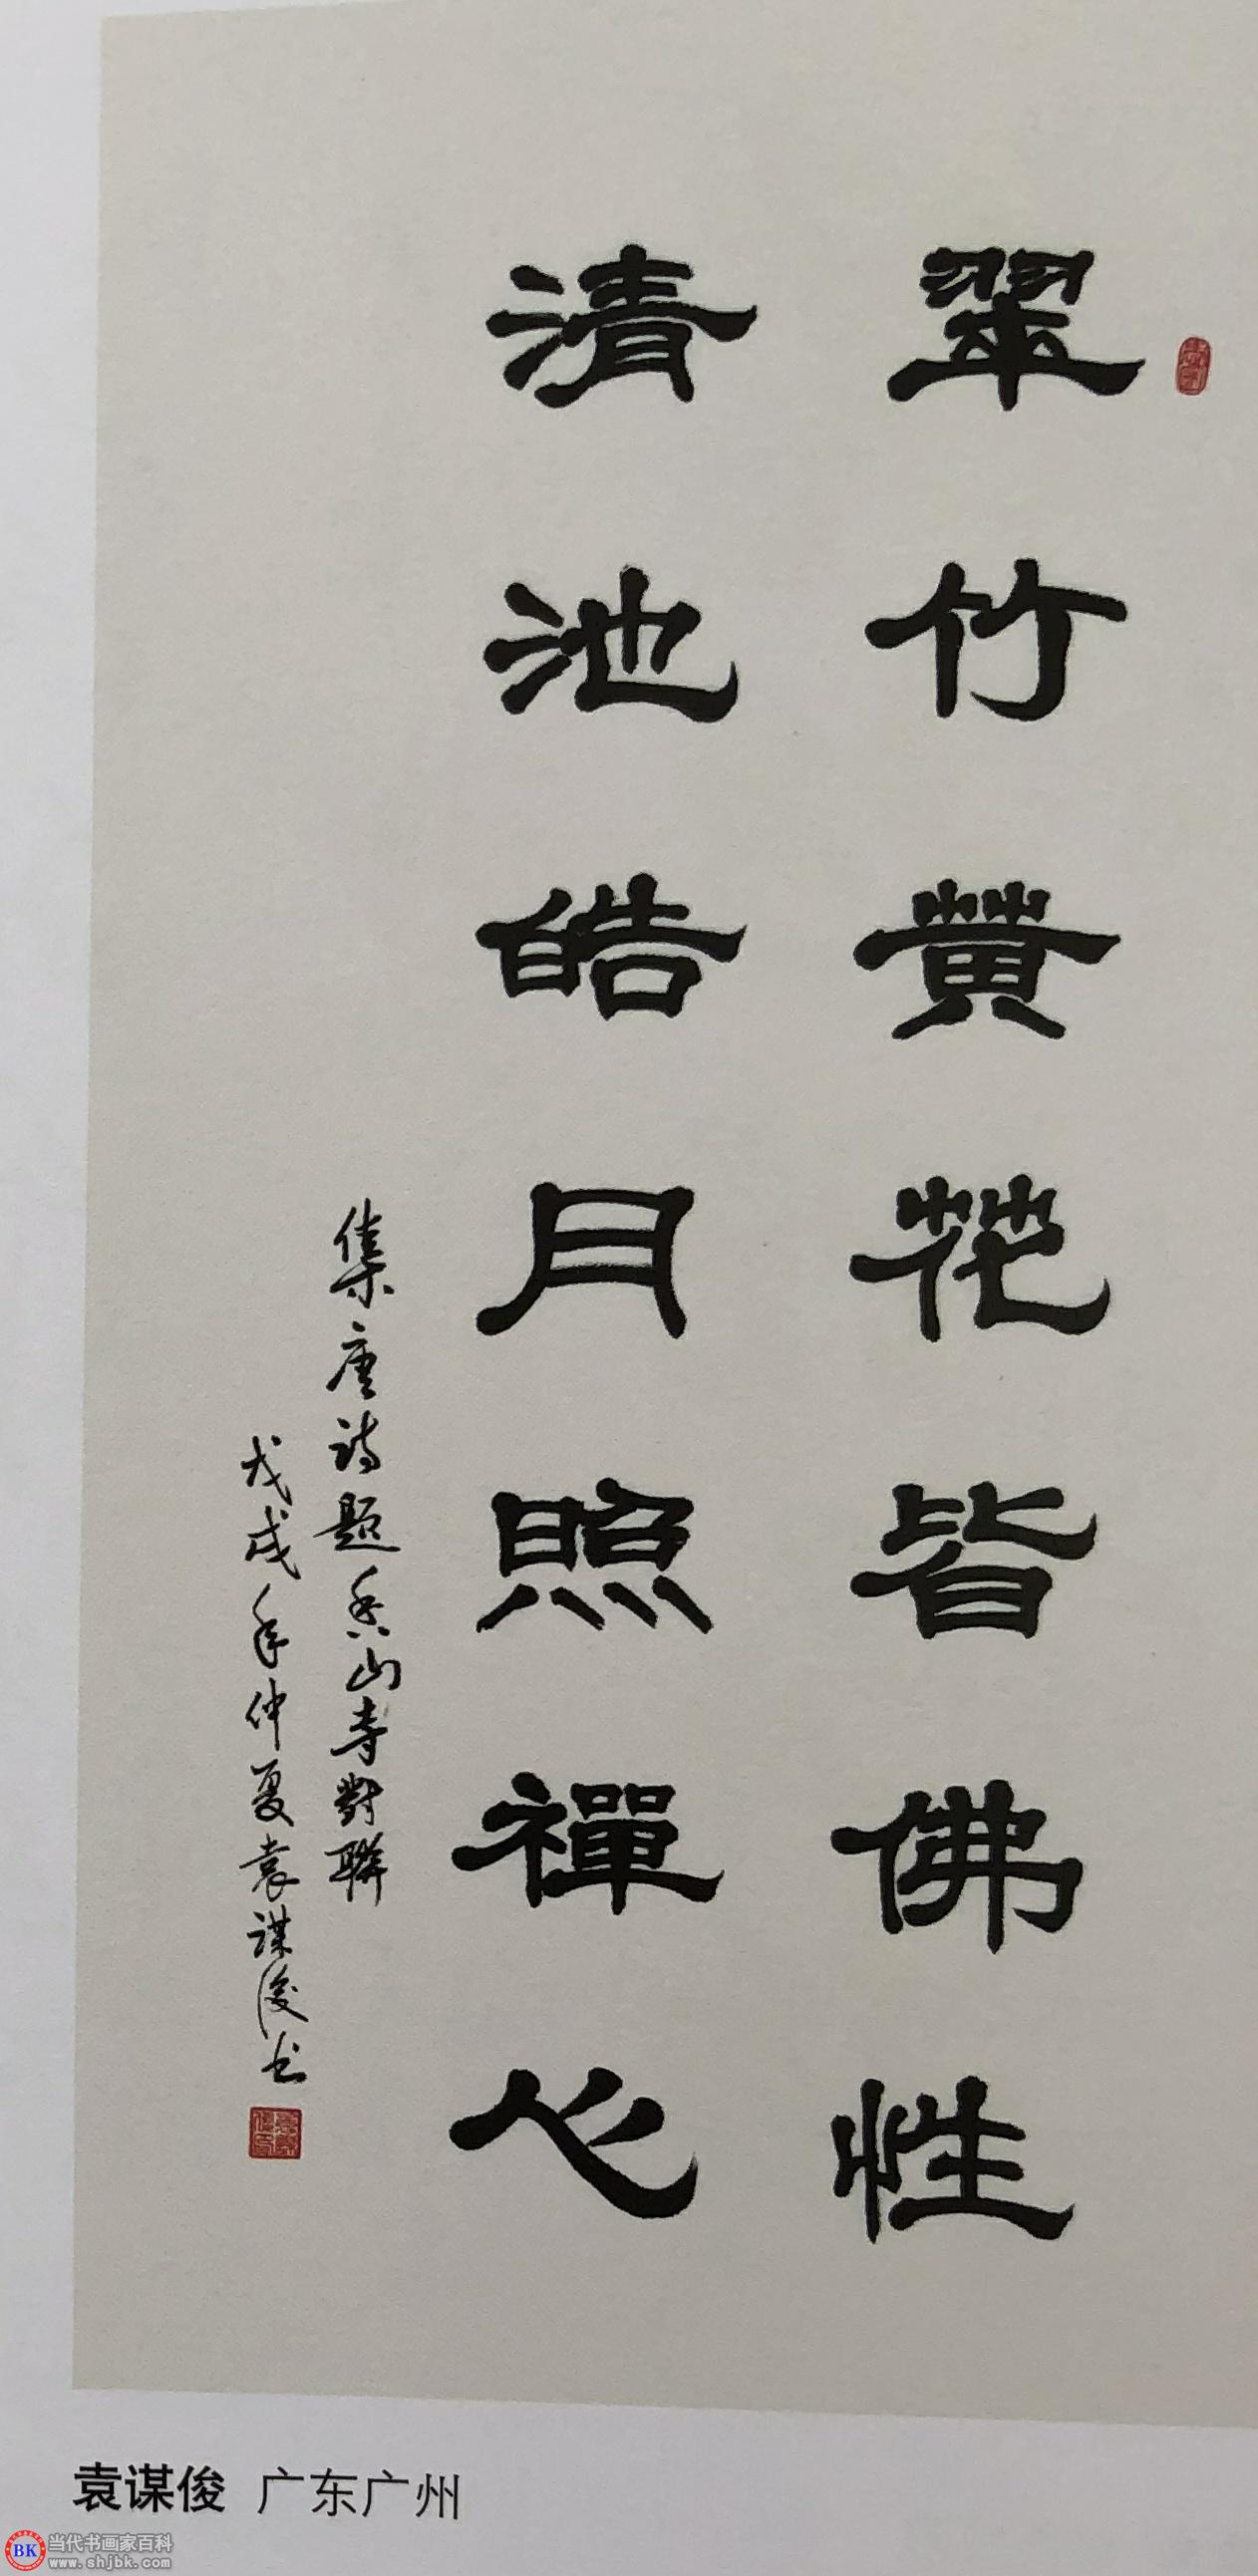 翠竹黄花皆佛性
清池皓月照禪心
集唐诗题香山寺對聯
戊戌年仲夏袁谋俊书
袁谋俊 广东广州
BK 当代书画家百科
www.shjbk.com